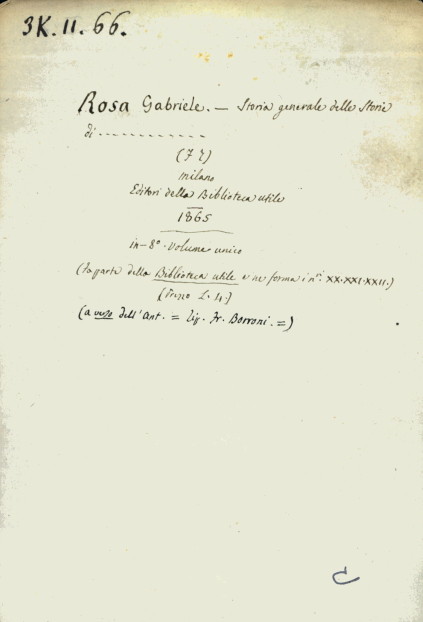 3K.II.66.
Rosa Gabriele. — Storia generale delle Storie
di ------------
(7 Z)
Milano
Editori della Biblioteca utile
1865
in-8°. Volume unico
(Fa parte della Biblioteca utile e ne forma i nⁱ. XX.XXI.XXII.)
(Prezzo L. 4.)
(a verso dell'Ant. = Lig. Fr. Borroni. =)
C